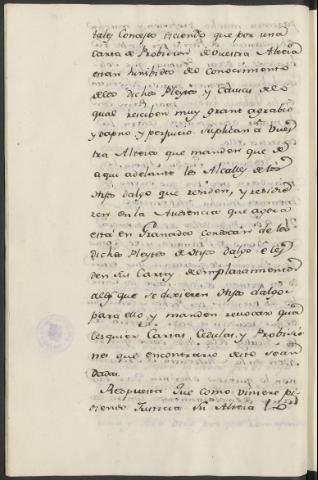 tales Concejos diciendo que por una
Carta é Provicion de vuestra Alteza
estan hinibidos del conocimiento
de los dichos Pleytos y Causas de lo
qual reciben muy grave agrabio
y dapno, y perjucio suplican a vues
tra Alteza que manden que de
aqui adelante los Alcaldes de los
Hijos dalgo que residen, y residie
ren en la Audiencia que agora
está en Granada conozcan de los
dichos Pleytos de Hijos dalgo é les
den sus Cartas de emplazamientos
a los que se dixeren Hijos dalgo
para ello, y manden revocar qua
lesquier Cartas, Cedulas, y Provicio
nes que en contrario desto sean
dadas.
Respuesta: Que como viniere pi
diendo Justicia Su Alteza